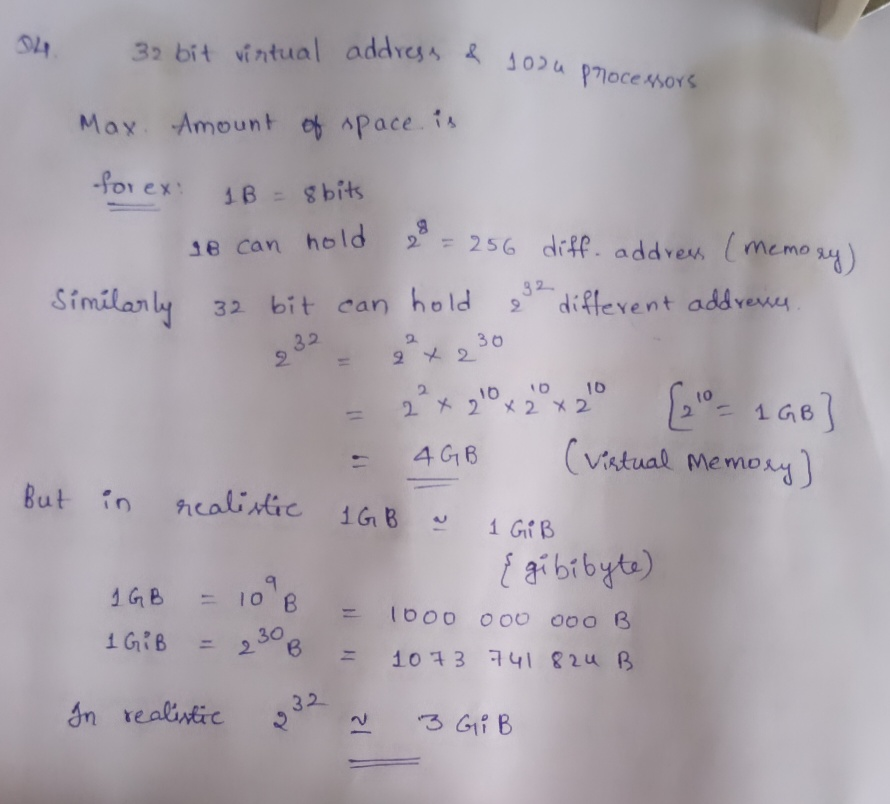 Q4. 32 bit virtual address & 1024 processors
Max. Amount of space is
for ex: 1B = 8bits
1B can hold 2⁸ = 256 diff. address (memory)
Similarly 32 bit can hold 2³² different addresses.
2³² = 2² x 2³⁰
= 2² x 2¹⁰ x 2¹⁰ x 2¹⁰ [2¹⁰ = 1GB]
= 4GB (Virtual Memory)
But in realistic 1GB ≃ 1 GiB
{gibibyte)
1GB = 10⁹ B = 1000 000 000 B
1GiB = 2³⁰ B = 1073 741 824 B
In realistic 2³² ≃ 3 GiB